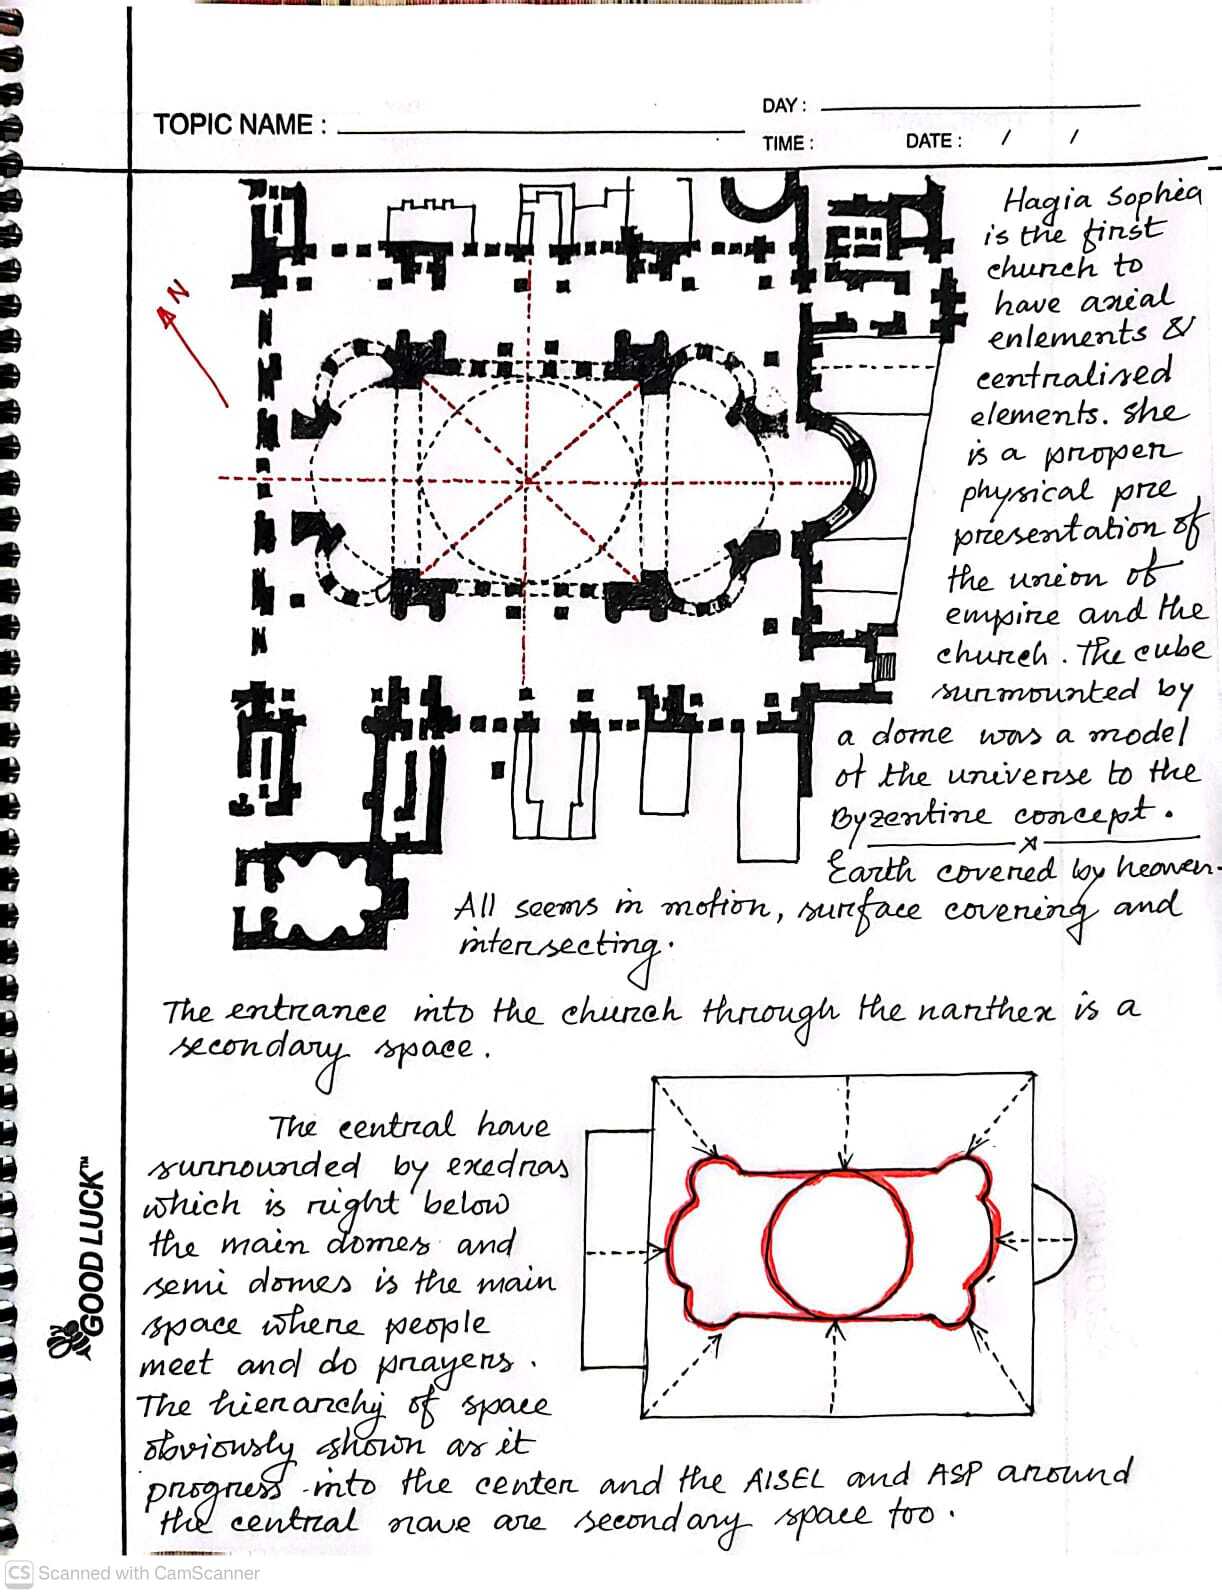 TOPIC NAME :
DAY :
TIME :
DATE : / /
N
Hagia Sophia
is the first
church to
have axial
enlements &
centralised
elements. She
is a proper
physical pre
presentation of
the union of
empire and the
church. The cube
surmounted by
a dome was a model
of the universe to the
Byzentine concept.
x
Earth covered by heaven.
All seems in motion, surface covering and
intersecting.
The entrance into the church through the narthex is a
secondary space.
The central have
surrounded by exedras
which is right below
the main domes and
semi domes is the main
space where people
meet and do prayers.
The hierarchy of space
obviously shown as it
progress into the center and the AISEL and ASP around
the central nave are secondary space too.
GOOD LUCK™
CS Scanned with CamScanner